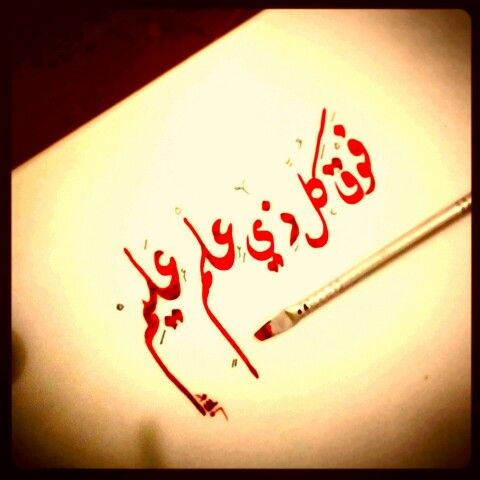 فوق كل ذي علم عليم